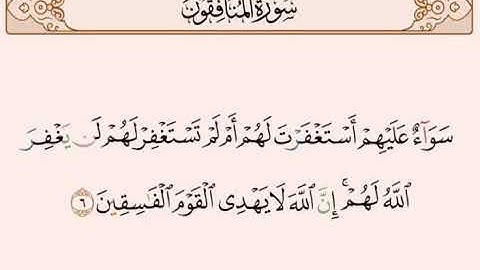 سُورَةُ الْمُنَافِقُونَ
سَوَآءٌ عَلَيْهِمْ أَسْتَغْفَرْتَ لَهُمْ أَمْ لَمْ تَسْتَغْفِرْ لَهُمْ لَن يَغْفِرَ
اللَّهُ لَهُمْ ۚ إِنَّ اللَّهَ لَا يَهْدِى الْقَوْمَ الْفَاسِقِينَ ٦